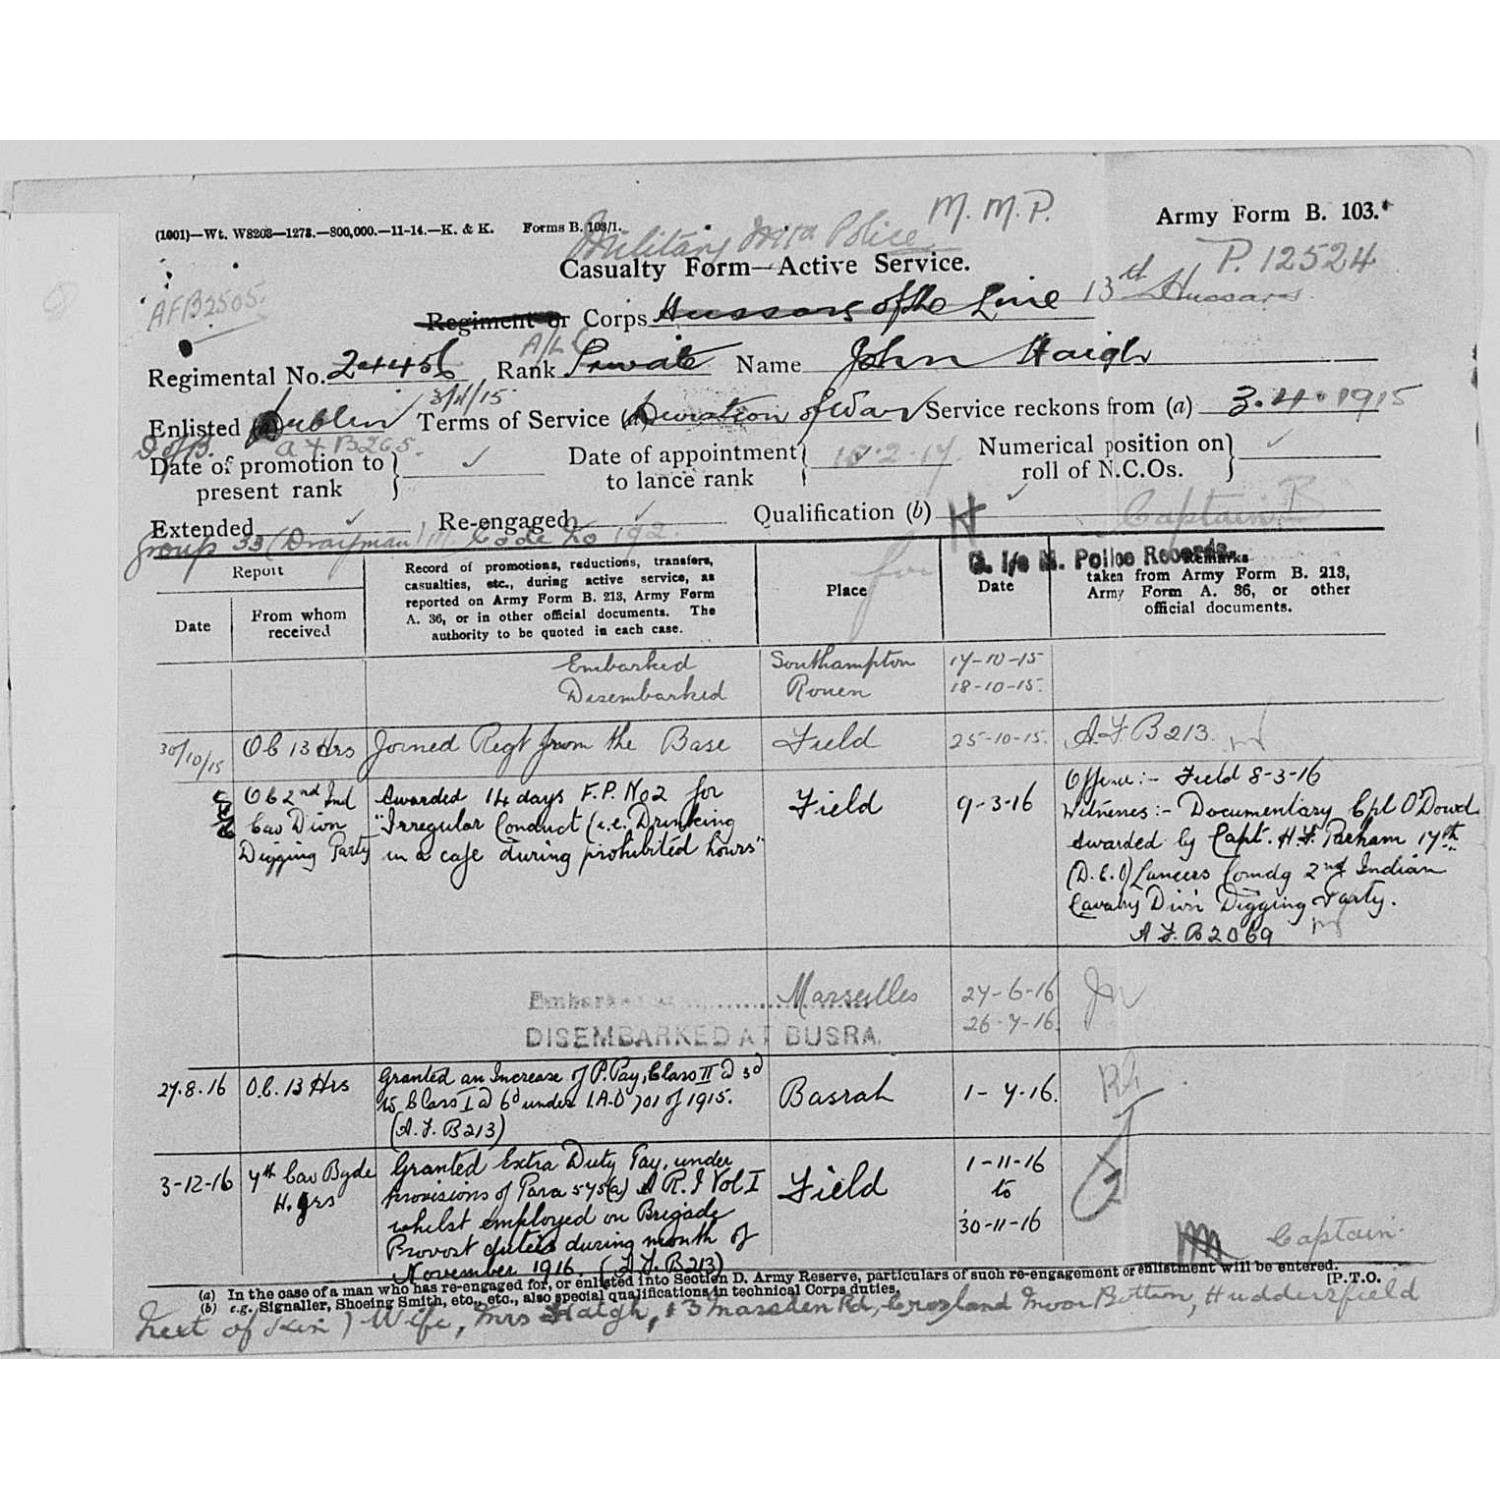 (1001)—Wt. W8203—1273.—800,000.—11-14.—K. & K. Forms B. 103/1.
M. M. P.
Army Form B. 103.
Military Police
P. 12524
Casualty Form—Active Service.
AFB2505.
Regiment or Corps Hussars of the Line 13th Hussars
A/L/C
Regimental No. 24456 Rank Private Name John Haigh
3/4/15
Enlisted Dublin Terms of Service (a) Duration of War Service reckons from (a) 3.4.1915
Date of promotion to present rank
Date of appointment to lance rank
Numerical position on roll of N.C.Os.
Extended Re-engaged Qualification (b)
Captain
Group 33 (Drayman) Code No 192.
for
O. i/c M. Police Records
Report
Date
From whom received
Record of promotions, reductions, transfers, casualties, etc., during active service, as reported on Army Form B. 213, Army Form A. 36, or in other official documents. The authority to be quoted in each case.
Place
Date
Remarks
taken from Army Form B. 213, Army Form A. 36, or other official documents.
Embarked Southampton 17-10-15
Disembarked Rouen 18-10-15.
30/10/15 OC 13 Hrs Joined Regt from the Base Field 25-10-15. A.F.B 213.
OC 2nd Ind Cav Divn Digging Party
Awarded 14 days F.P. No 2 for
"Irregular Conduct (i.e. Drinking
in a cafe during prohibited hours"
Field 9-3-16
Offence:- Field 8-3-16
Witness:- Documentary Cpl O'Dowd
Awarded by Capt. H.F. Parham 17th
(D.C.O) Lancers Comdg 2nd Indian
Cavalry Divn Digging Party.
A.F.B 2069
Embarked Marseilles 27-6-16
DISEMBARKED AT BUSRA. 26-7-16
27.8.16 O.C. 13 Hrs
Granted an Increase of P. Pay, Class II @ 3d
to Class I @ 6d under I.A.O 701 of 1915.
(A.F. B213)
Basrah 1-7-16.
3-12-16 7th Cav Bgde H. Qrs
Granted Extra Duty Pay, under
provisions of Para 575(a) A R. I Vol I
whilst employed on Brigade
Provost duties during month of
November 1916. (A.F. B213)
Field 1-11-16
to
30-11-16
Captain
(a) In the case of a man who has re-engaged for, or enlisted into Section D. Army Reserve, particulars of such re-engagement or enlistment will be entered.
(b) e.g., Signaller, Shoeing Smith, etc., etc., also special qualifications in technical Corps duties.
[P.T.O.
Next of Kin) Wife, Mrs Haigh, 13 Marsden Rd, Crosland Moor Bottom, Huddersfield